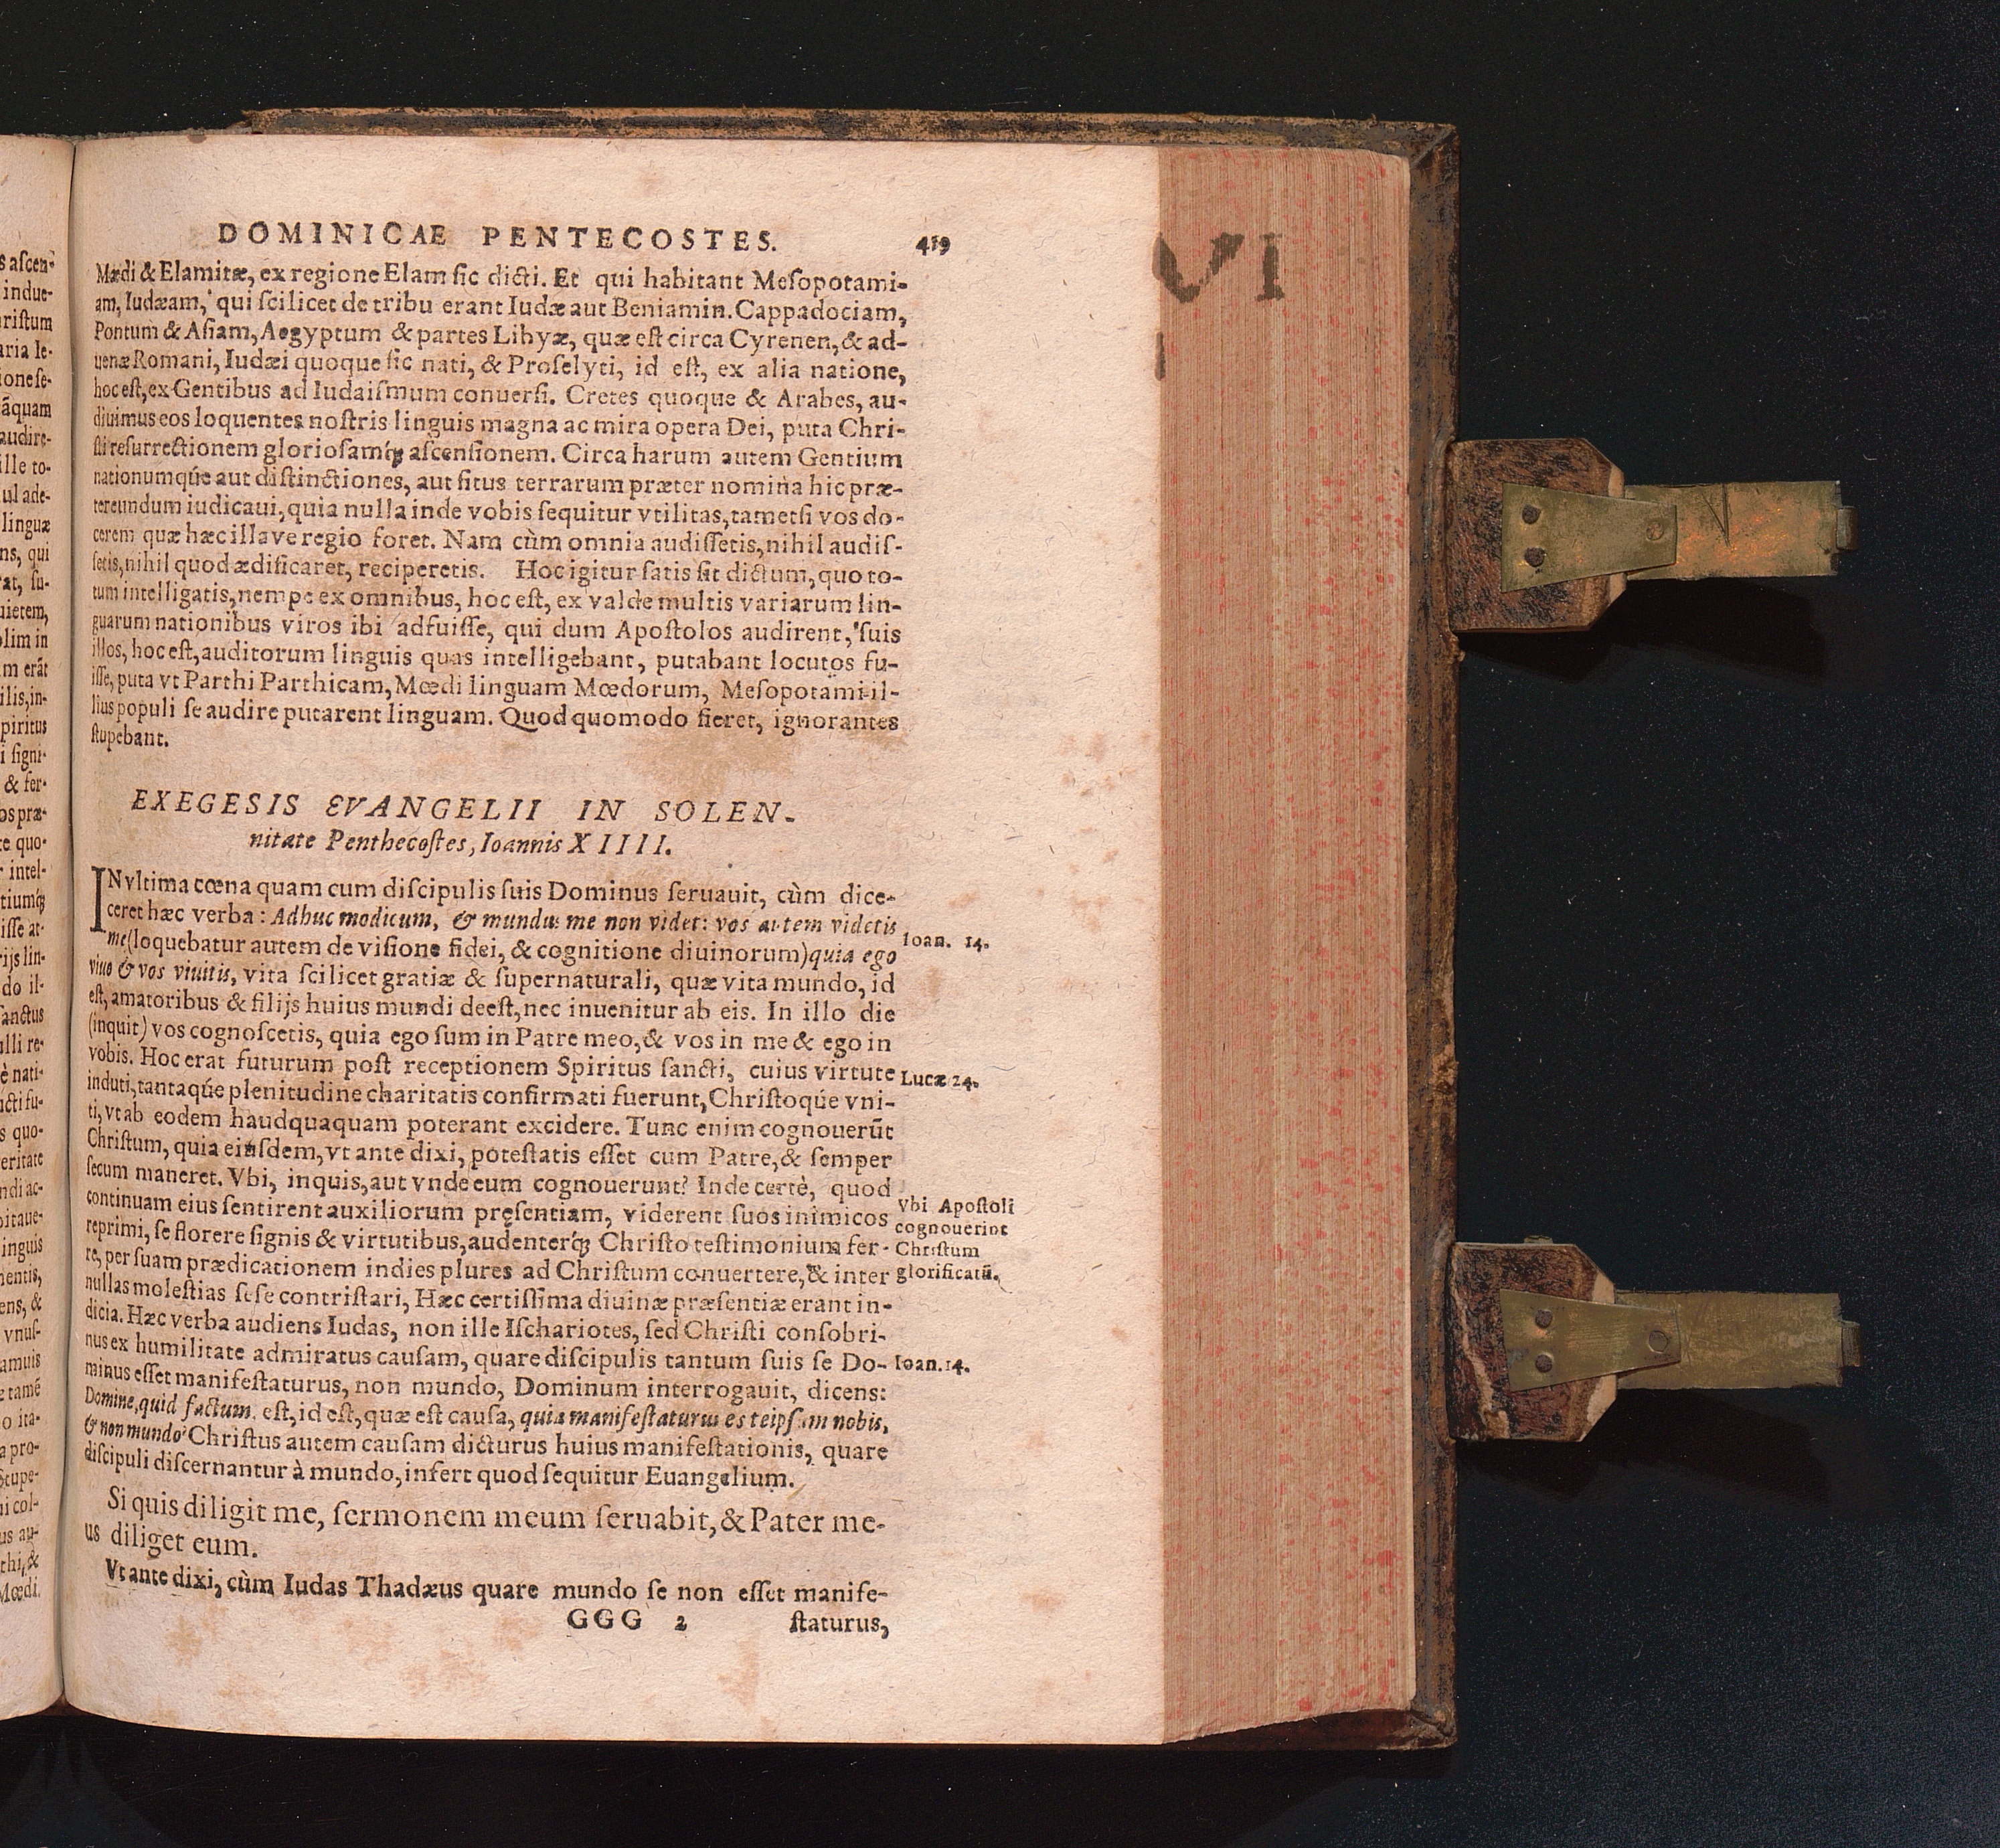 DOMINICAE PENTECOSTES. 419
Mædi & Elamitæ, ex regione Elam sic dicti. Et qui habitant Mesopotami-
am, Iudæam, qui scilicet de tribu erant Iudæ aut Beniamin. Cappadociam,
Pontum & Asiam, Aegyptum & partes Libyæ, quæ est circa Cyrenen, & ad-
uenæ Romani, Iudæi quoque sic nati, & Proselyti, id est, ex alia natione,
hoc est, ex Gentibus ad Iudaismum conuersi. Cretes quoque & Arabes, au-
diuimus eos loquentes nostris linguis magna ac mira opera Dei, puta Chri-
sti resurrectionem gloriosamq́; ascensionem. Circa harum autem Gentium
nationumq́ue aut distinctiones, aut situs terrarum præter nomina hic præ-
tereundum iudicaui, quia nulla inde vobis sequitur vtilitas, tametsi vos do-
cerem quæ hæc illa ve regio foret. Nam cùm omnia audissetis, nihil audis-
setis, nihil quod ædificaret, reciperetis. Hoc igitur satis sit dictum, quo to-
tum intelligatis, nempe ex omnibus, hoc est, ex valde multis variarum lin-
guarum nationibus viros ibi adfuisse, qui dum Apostolos audirent, suis
illos, hoc est, auditorum linguis quas intelligebant, putabant locutos fu-
isse, puta vt Parthi Parthicam, Mœdi linguam Mœdorum, Mesopotami il-
lius populi se audire putarent linguam. Quod quomodo fieret, ignorantes
stupebant.
EXEGESIS EVANGELII IN SOLEN-
nitate Penthecostes, Ioannis XIIII.
IN vltima cœna quam cum discipulis suis Dominus seruauit, cùm dice-
ceret hæc verba: Adhuc modicum, & mundus me non videt: vos autem videtis
me (loquebatur autem de visione fidei, & cognitione diuinorum) quia ego
viuo & vos viuitis, vita scilicet gratiæ & supernaturali, quæ vita mundo, id
est, amatoribus & filijs huius mundi deest, nec inuenitur ab eis. In illo die
(inquit) vos cognoscetis, quia ego sum in Patre meo, & vos in me & ego in
vobis. Hoc erat futurum post receptionem Spiritus sancti, cuius virtute
induti, tantaq́ue plenitudine charitatis confirmati fuerunt, Christoq́ue vni-
ti, vt ab eodem haudquaquam poterant excidere. Tunc enim cognouerũt
Christum, quia eiusdem, vt ante dixi, potestatis esset cum Patre, & semper
secum maneret. Vbi, inquis, aut vnde eum cognouerunt? Inde certè, quod
continuam eius sentirent auxiliorum pręsentiam, viderent suos inimicos
reprimi, se florere signis & virtutibus, audenterq́; Christo testimonium fer-
re, per suam prædicationem indies plures ad Christum conuertere, & inter
nullas molestias sese contristari, Hæc certissima diuinæ præsentiæ erant in-
dicia. Hæc verba audiens Iudas, non ille Ischariotes, sed Christi consobri-
nus ex humilitate admiratus causam, quare discipulis tantum suis se Do-
minus esset manifestaturus, non mundo, Dominum interrogauit, dicens:
Domine, quid factum est, id est, quæ est causa, quia manifestaturus es teipsum nobis,
& non mundo? Christus autem causam dicturus huius manifestationis, quare
discipuli discernantur à mundo, infert quod sequitur Euangelium.
Si quis diligit me, sermonem meum seruabit, & Pater me-
us diliget eum.
Vt ante dixi, cùm Iudas Thadæus quare mundo se non esset manife-
GGG 2 staturus,
Ioan. 14.
Lucæ 24.
Vbi Apostoli
cognouerint
Christum
glorificatũ.
Ioan. 14.
VI